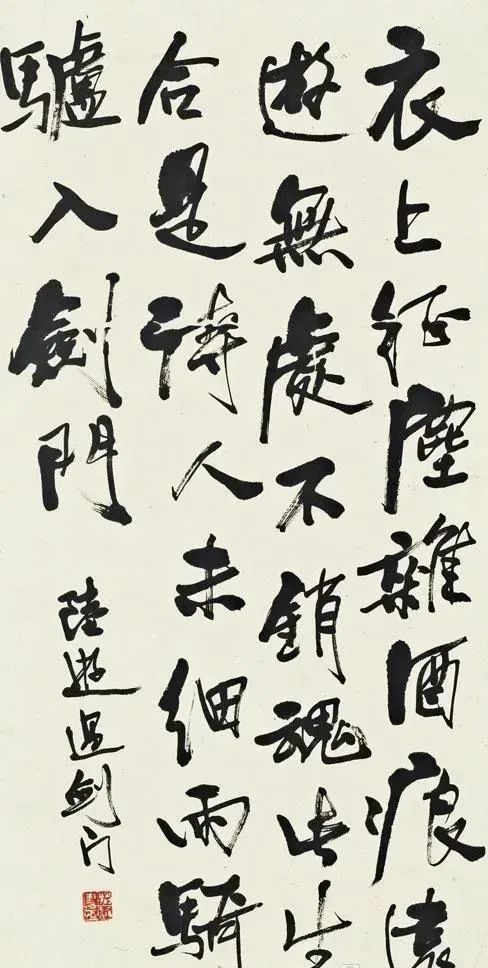 衣上征塵雜酒痕遠
遊無處不銷魂此生
合是詩人未細雨騎
驢入劍門
陸遊過劍门